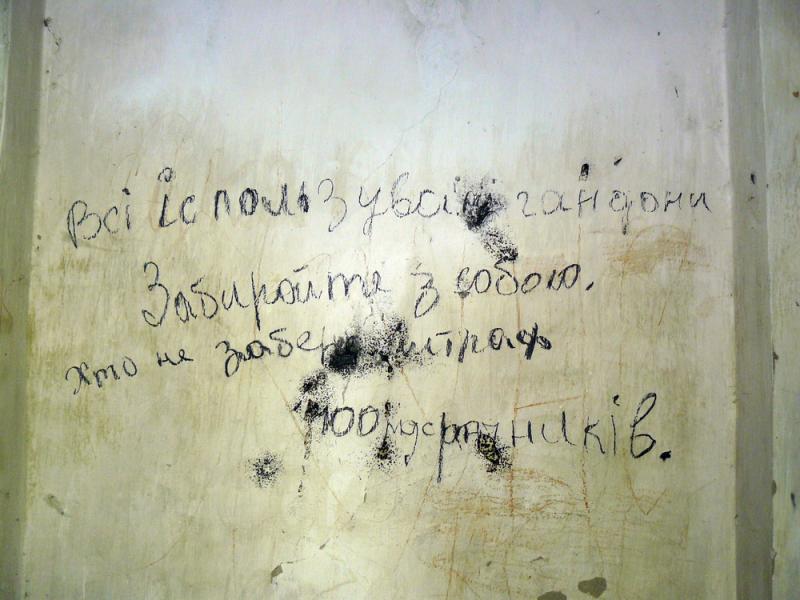 Всі іспользувані гандони
Забирайте з собою.
хто не забере штраф
100 підсрачників.